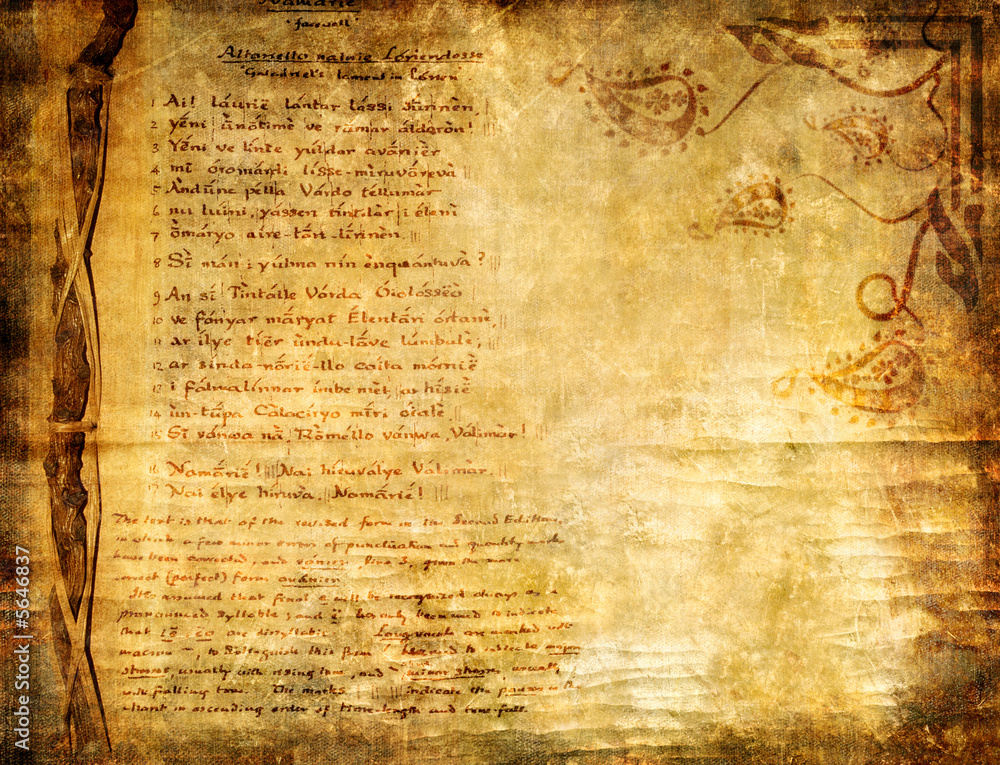 Namárië
"farewell"
Altariello nainië Lóriendesse
"Galadriel's lament in Lórien"
1 Ai! láurië lántar lássi sūrínèn,
2 Yéni ūnótimè ve rāmar áldaròn!
3 Yéni ve línte yúldar avānièr
4 mī óromárdi lísse-miruvórevà
5 Àndūne pélla Várdo téllumàr
6 nu luini, yássen tíntilàr i éleni
7 ōmáryo aíre-tári-lírinèn.
8 Sī mán i yúlma nin ènquántuvà?
9 An sí Tintálle Várda Óiolósseo
10 ve fányar máryat Élentári órtanè,
11 ar ílye tíèr ùndu-láve lúmbulè;
12 ar sinda-nórië-llo caita mórniè
13 i fálmalínnar ímbe mèt, ar hísiè
14 ùn-túpa Càlacíryo míri oíalè.
15 Sī vánwa nā, Rōméllo vánwa, Válimàr!
16 Namárië! Nai híruválye Válimàr.
17 Nai élye híruvà. Namárië!
The text is that of the revised form in the Second Edition,
in which a few minor errors of punctuation and quantity
have been corrected, and vánier, line 3, given the more
correct (perfect) form avánier.
It is assumed that final e will be recognized always as a
pronounced syllable; and ë has only been used to indicate
that ië, ëo are disyllabic. Long vowels are marked with
macron ¯, to distinguish this from ´ used to indicate major
stress, usually with rising tone, and ` minor stress, usually
with falling tone. The marks | || ||| indicate the pauses in the
chant in ascending order of time-length and tone-fall.
Adobe Stock | #5646837